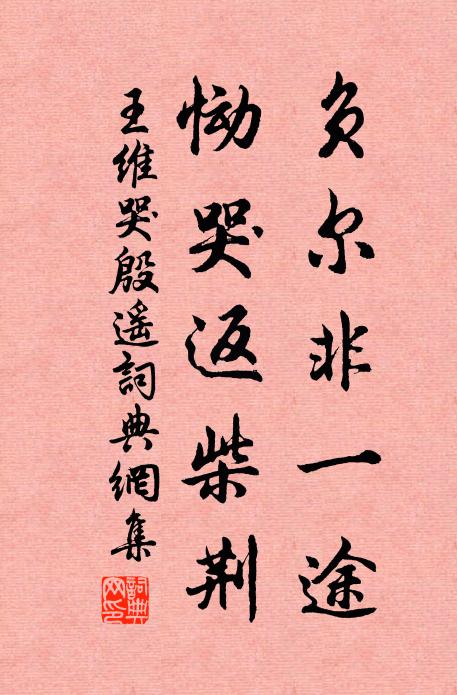 负尔非一途
恸哭返柴荆
王维哭殷遥詞典網集
詞典网印